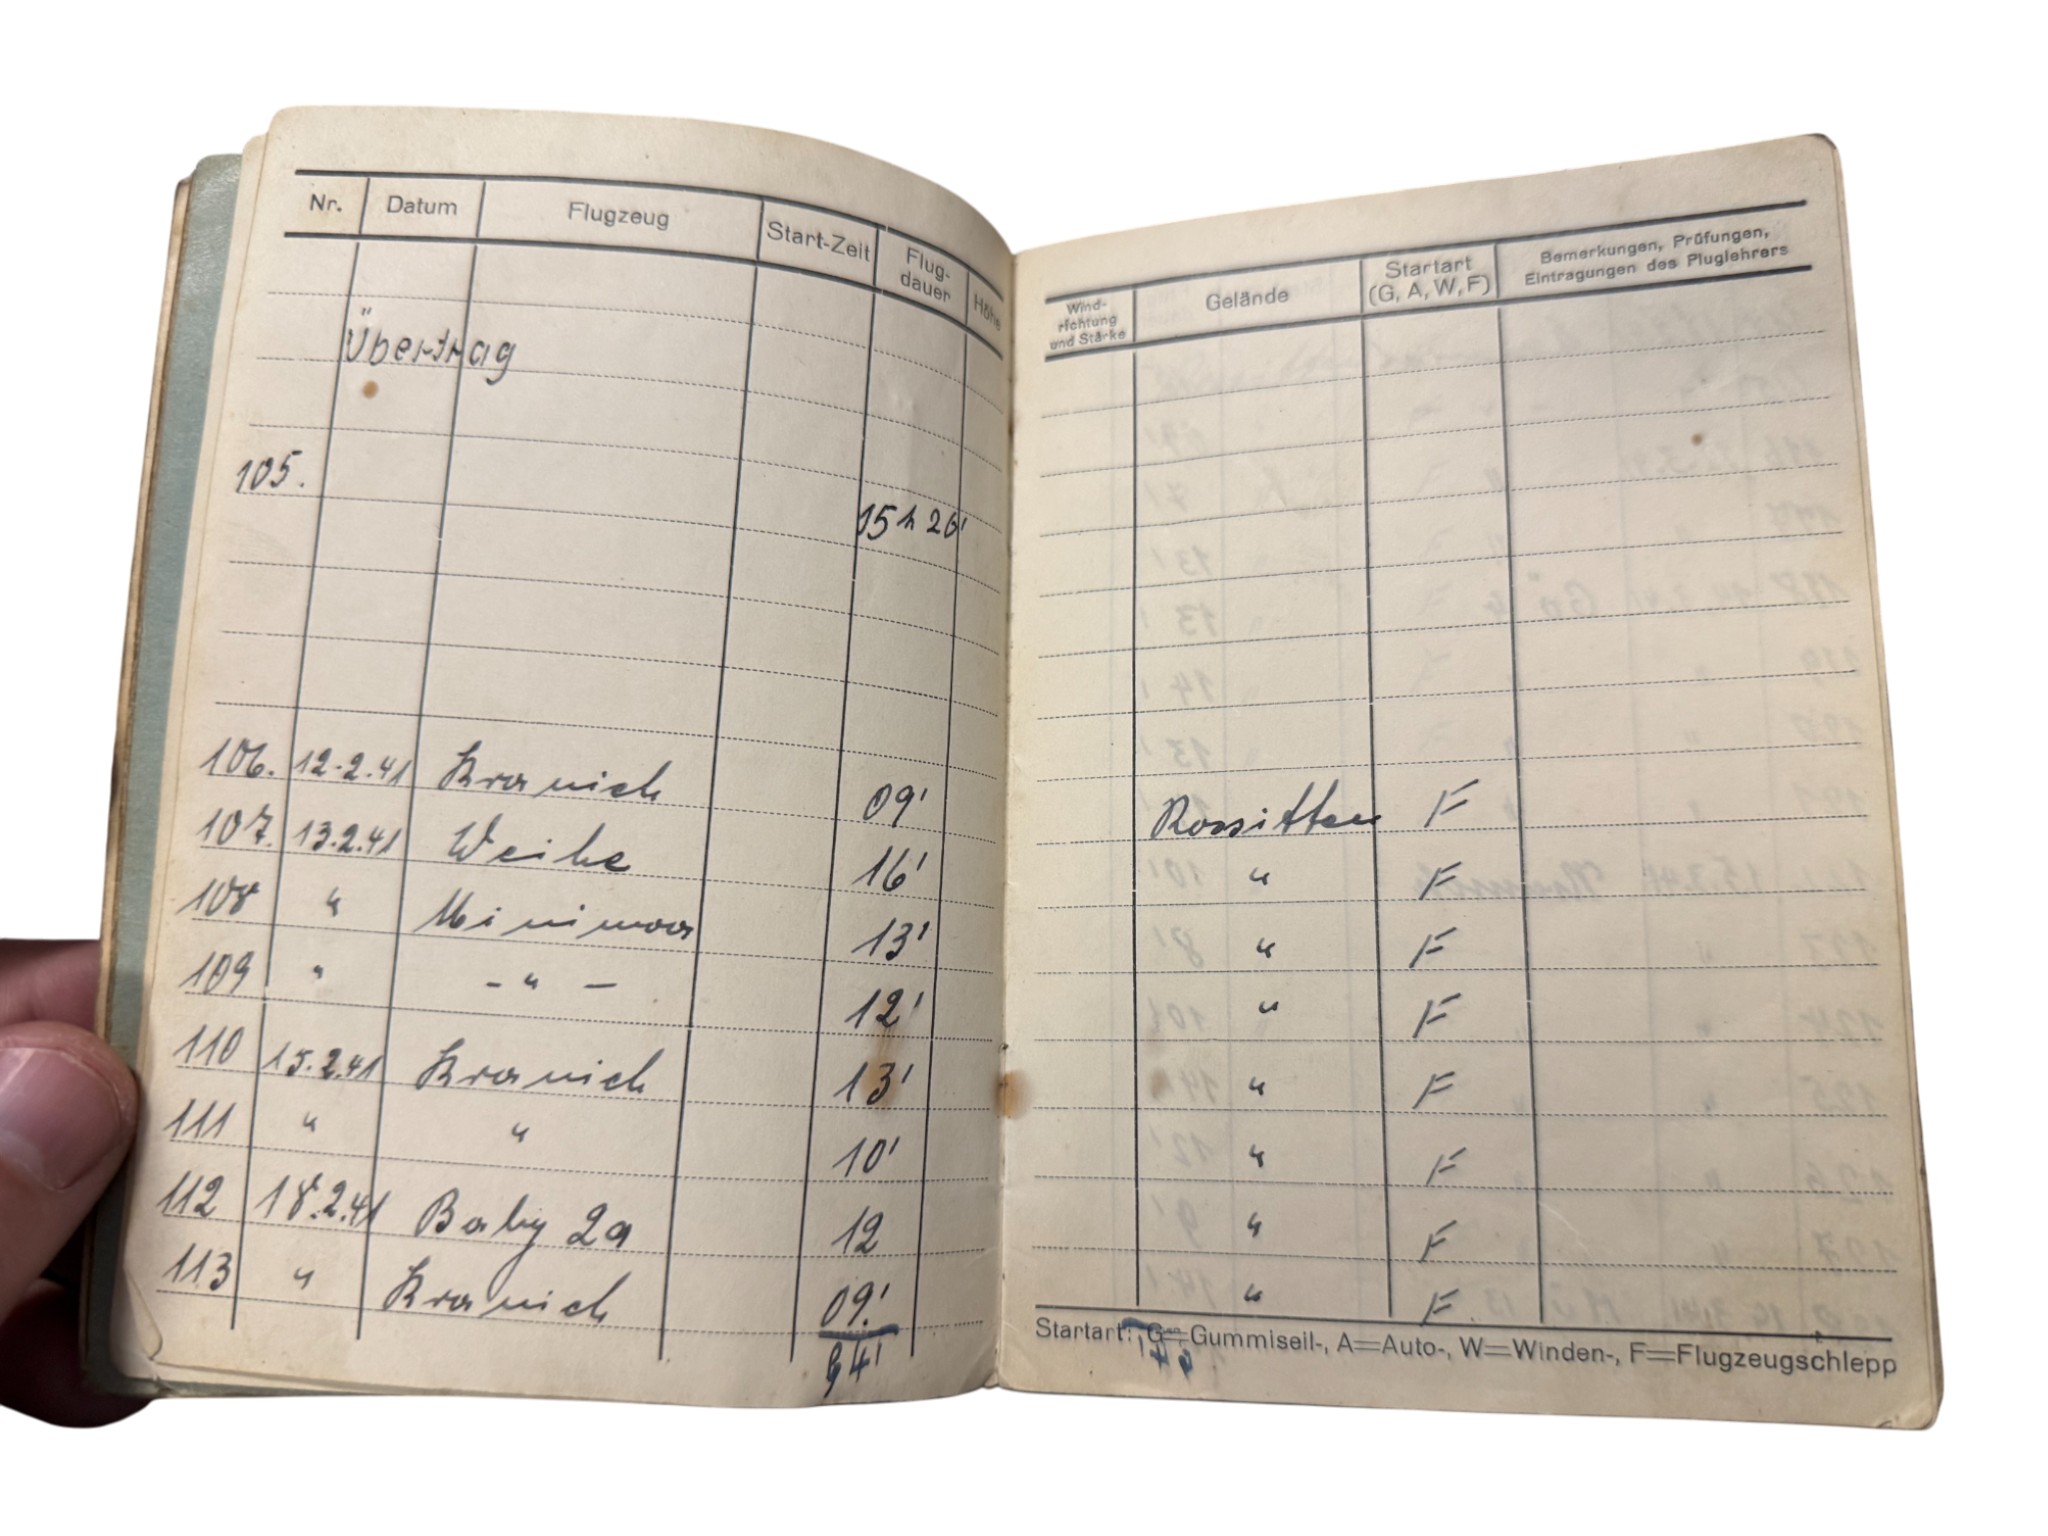 Nr. Datum Flugzeug Start-Zeit Flug-dauer Höhe
Übertrag
105. 15 h 26'
106. 12.2.41 Kranich 09'
107. 13.2.41 Weihe 16'
108 " Minimoa 13'
109 " - " - 12'
110 15.2.41 Kranich 13'
111 " " 10'
112 18.2.41 Baby 2a 12
113 " Kranich 09!
94'
Wind-richtung und Stärke Gelände Startart (G, A, W, F) Bemerkungen, Prüfungen, Eintragungen des Fluglehrers
Rossitten F
" F
" F
" F
" F
" F
" F
" F
Startart: G=Gummiseil-, A=Auto-, W=Winden-, F=Flugzeugschlepp